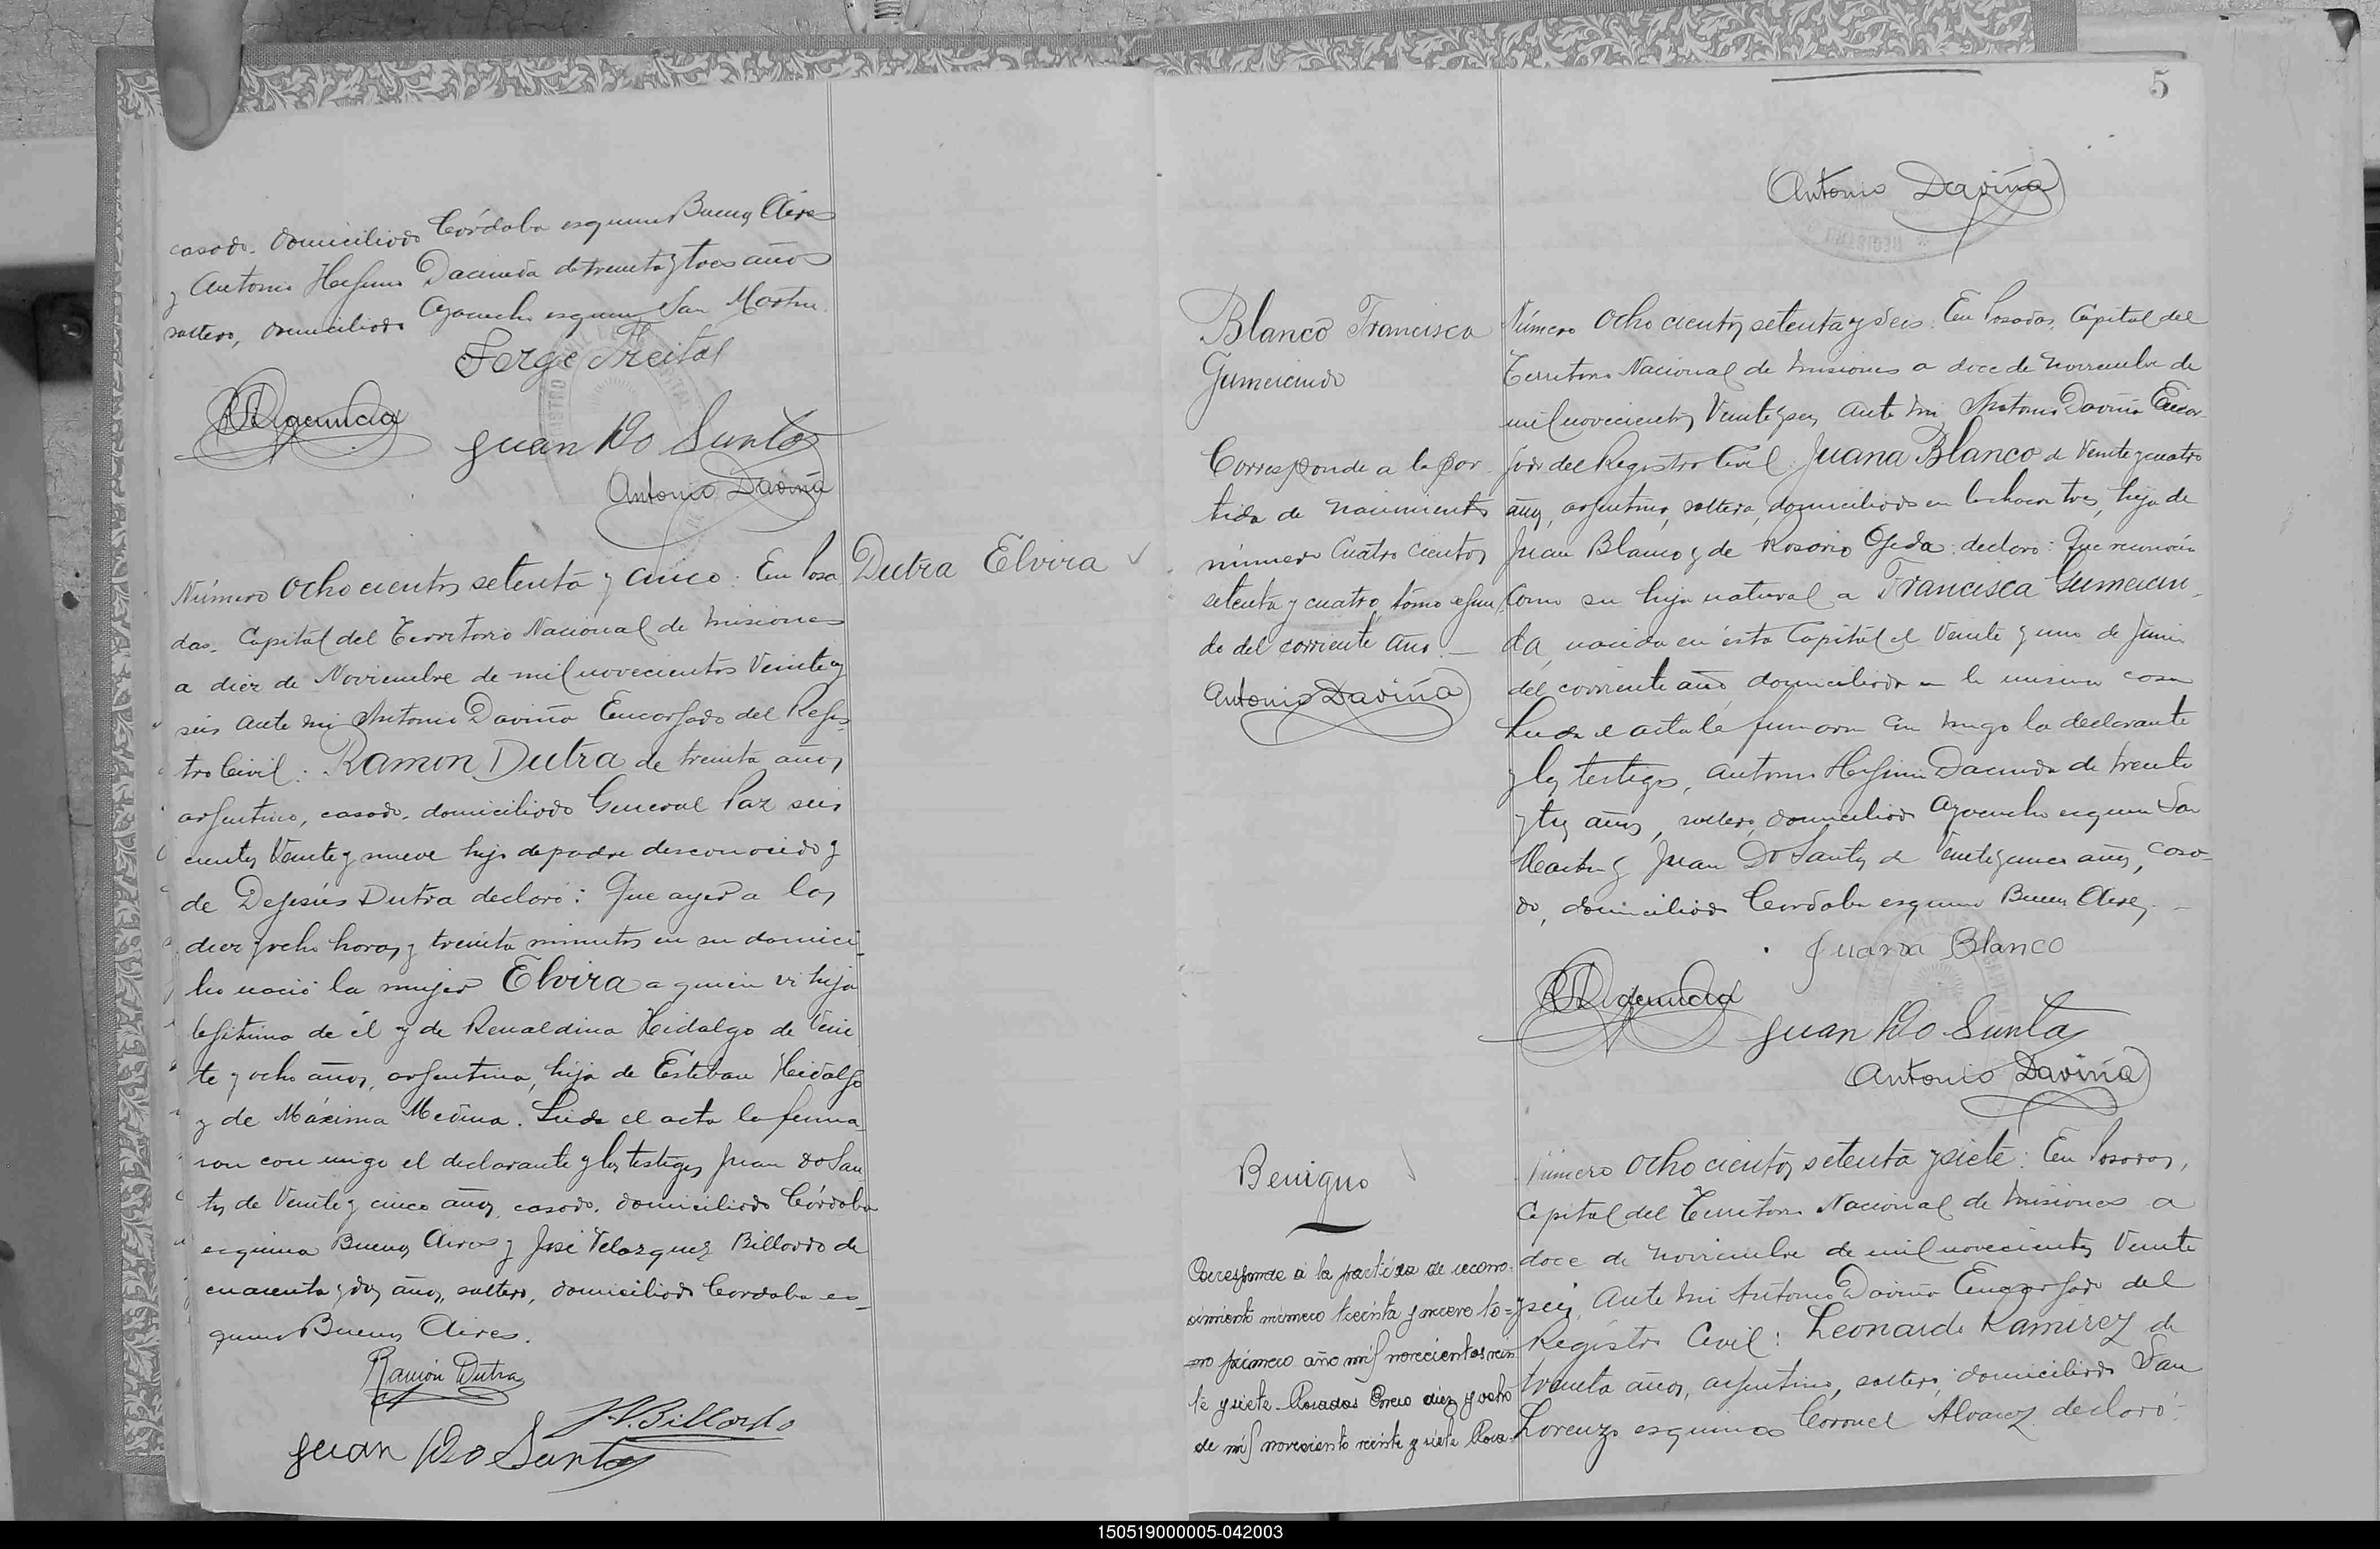 casado. domiciliado Córdoba esquina Buenos Aires
y Antonio Higinio Dacunda de treinta y tres años
soltero, domiciliado Ayacucho esquina San Martin.
Jorge Freital
Juan Do Santos
Antonio Daviña
Número Ochocientos setenta y cinco: En Posa
das. Capital del Territorio Nacional de Misiones
a diez de Noviembre de mil novecientos Veinte y
seis Ante mi Antonio Daviña Encargado del Regis
tro Civil: Ramon Dutra de treinta años
argentino, casado. domiciliado General Paz seis
cientos Veinte y nueve hijo de padre desconocido y
de Dejesús Dutra declaró: Que ayer a las
diez y ocho horas y treinta minutos en su domici
lio nació la mujer Elvira a quien vi hija
legítima de él y de Renaldina Hidalgo de Vein
te y ocho años, argentina, hija de Esteban Hidalgo
y de Máxima Medina. Leida el acta la firma
ron con migo el declarante y los testigos Juan do San
tos de Veinte y cinco años, casado. domiciliado Córdoba
esquina Buenos Aires y José Velazquez Billordo de
cuarenta y dos años, soltero, domiciliado Cordoba es-
quina Buenos Aires.
Ramón Dutra
J. V. Billordo
Juan Do Santos
Dutra Elvira
5
Antonio Daviña
Blanco Francisca
Gumercinda
Corresponde a la par
tida de nacimiento
número Cuatro cientos
setenta y cuatro, tomo segun
do del corriente año. —
Antonio Daviña
Número Ochocientos setenta y seis: En Posadas, Capital del
Territorio Nacional de Misiones a doce de Noviembre de
mil novecientos Veinte y seis Ante mi Antonio Daviña Encar-
gado del Registro Civil: Juana Blanco de Veinte y cuatro
años, argentina, soltera, domiciliada en la chacra tres, hija de
Juan Blanco y de Rosario Ojeda: declaró: Que reconocia
Como su hija natural a Francisca Gumercin
da, nacida en ésta Capital el Veinte y uno de Junio
del corriente año domiciliada en la misma casa
Leida el acta la firmaron con migo la declarante
y los testigos, Antonio Higinio Dacunda de treinta
y tres años, soltero, domiciliado Ayacucho esquina San
Martin y Juan Do Santos de Veinte y cinco años, casa-
do, domiciliado Cordoba esquina Buenos Aires. —
Juana Blanco
Juan Do Santos
Antonio Daviña
Benigno
Corresponde a la partida de recono-
cimiento número treinta y nueve to-
mo primero año mil novecientos vein
te y siete. Posadas Enero diez y ocho
de mil noveciento veinte y siete
Número Ochocientos setenta y siete: En Posadas,
Capital del Territorio Nacional de Misiones a
doce de Noviembre de mil novecientos Veinte
y seis, Ante mi Antonio Daviña Encargado del
Registro Civil: Leonardo Ramirez de
treinta años, argentino, soltero, domiciliado San
Lorenzo esquina Coronel Alvarez declaró:
150519000005-042003